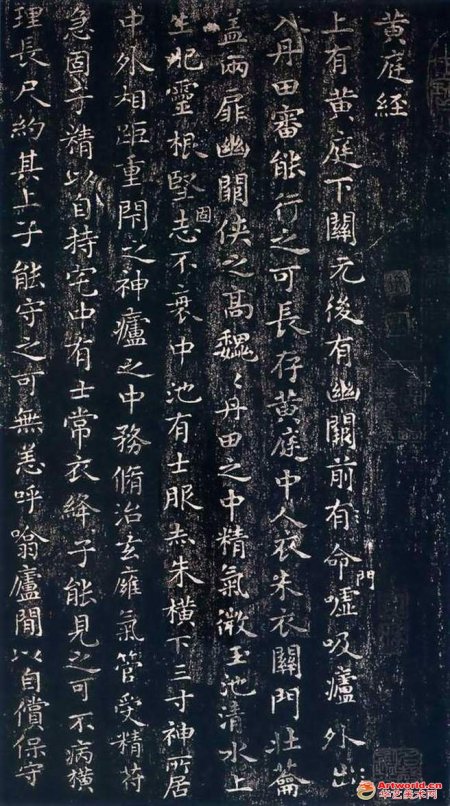 黄庭經
上有黄庭下關元後有幽闕前有命門噓吸廬外出
入丹田審能行之可長存黄庭中人衣朱衣關門壯蘥
盖兩扉幽闕俠之高魏〻丹田之中精氣微玉池清水上
生肥靈根堅固志不衰中池有士服赤朱橫下三寸神所居
中外相距重閇之神廬之中務脩治玄廱氣管受精苻
急固子精以自持宅中有士常衣絳子能見之可不病橫
理長尺約其上子能守之可無恙呼噏廬閒以自償保守
Artworld.cn
华艺美术网